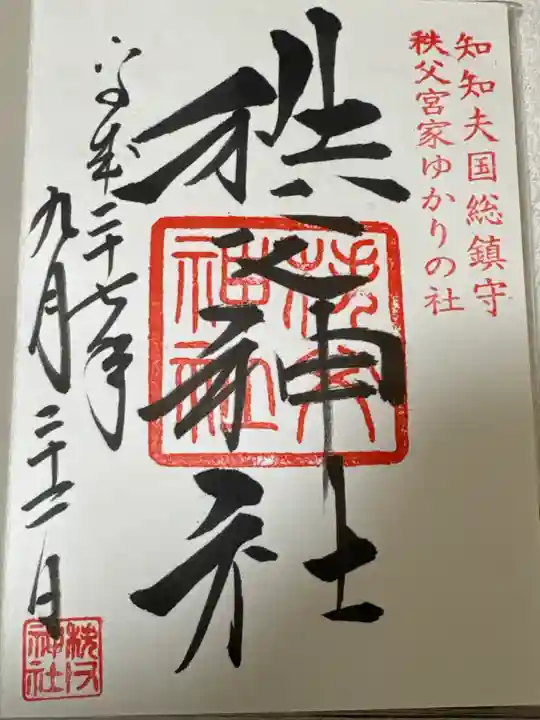 知知夫国総鎮守
秩父宮家ゆかりの社
秩父神社
秩父
神社
平成二十七年
九月二十二日
秩父
神社